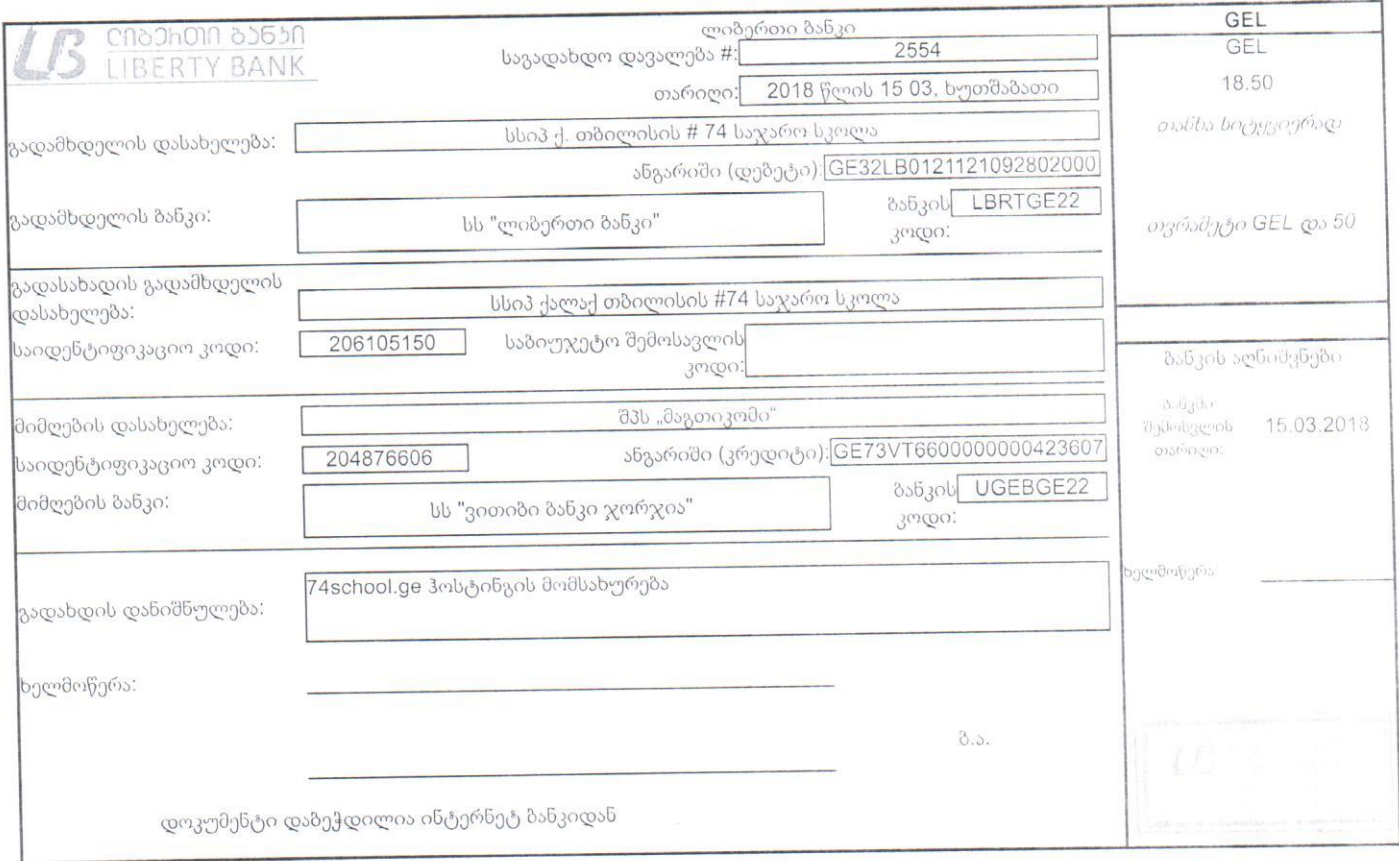 ლიბერთი ბანკი
LIBERTY BANK
ლიბერთი ბანკი
საგადახდო დავალება #: 2554
თარიღი: 2018 წლის 15 03, ხუთშაბათი
გადამხდელის დასახელება: სსიპ ქ. თბილისის # 74 საჯარო სკოლა
ანგარიში (დებეტი): GE32LB0121121092802000
გადამხდელის ბანკი: სს "ლიბერთი ბანკი"
ბანკის კოდი: LBRTGE22
გადასახადის გადამხდელის
დასახელება: სსიპ ქალაქ თბილისის #74 საჯარო სკოლა
საიდენტიფიკაციო კოდი: 206105150
საბიუჯეტო შემოსავლის
კოდი:
მიმღების დასახელება: შპს „მაგთიკომი“
საიდენტიფიკაციო კოდი: 204876606
ანგარიში (კრედიტი): GE73VT6600000000423607
მიმღების ბანკი: სს "ვითიბი ბანკი ჯორჯია"
ბანკის კოდი: UGEBGE22
გადახდის დანიშნულება: 74school.ge ჰოსტინგის მომსახურება
ხელმოწერა:
ბ.ა.
დოკუმენტი დაბეჭდილია ინტერნეტ ბანკიდან
GEL
GEL
18.50
თანხა სიტყვიერად
თვრამეტი GEL და 50
ბანკის აღნიშვნები
ბანკში
შემოსვლის 15.03.2018
თარიღი:
ხელმოწერა: